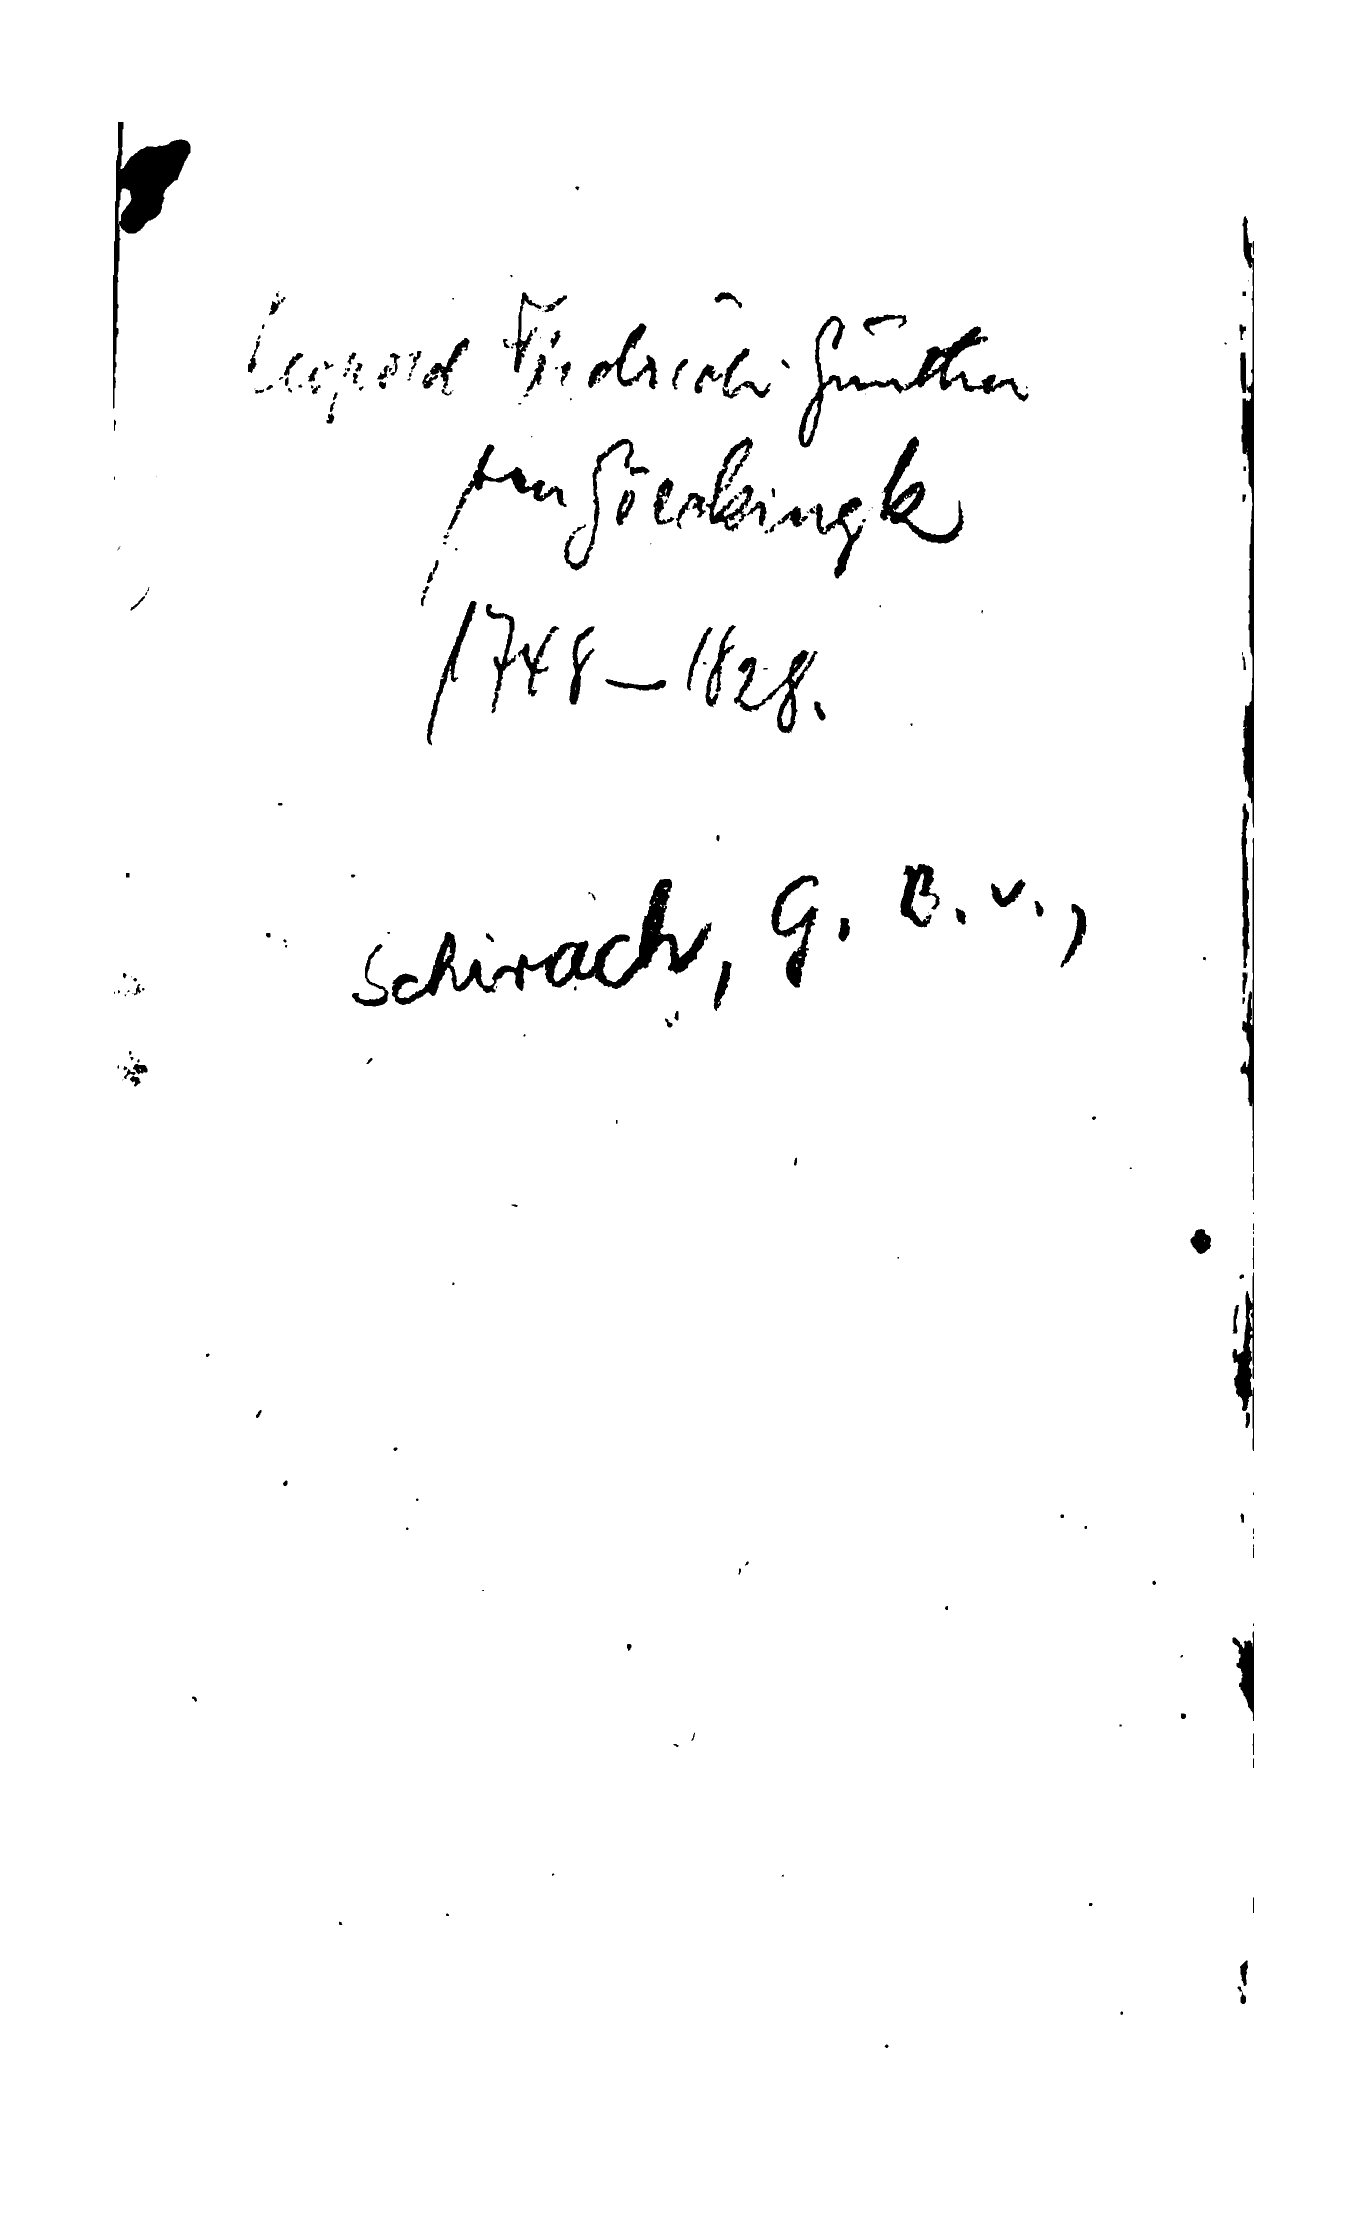 Leopold Friedrich Günther
von Göckingk
1748–1828.
Schirach, G. B. v.,